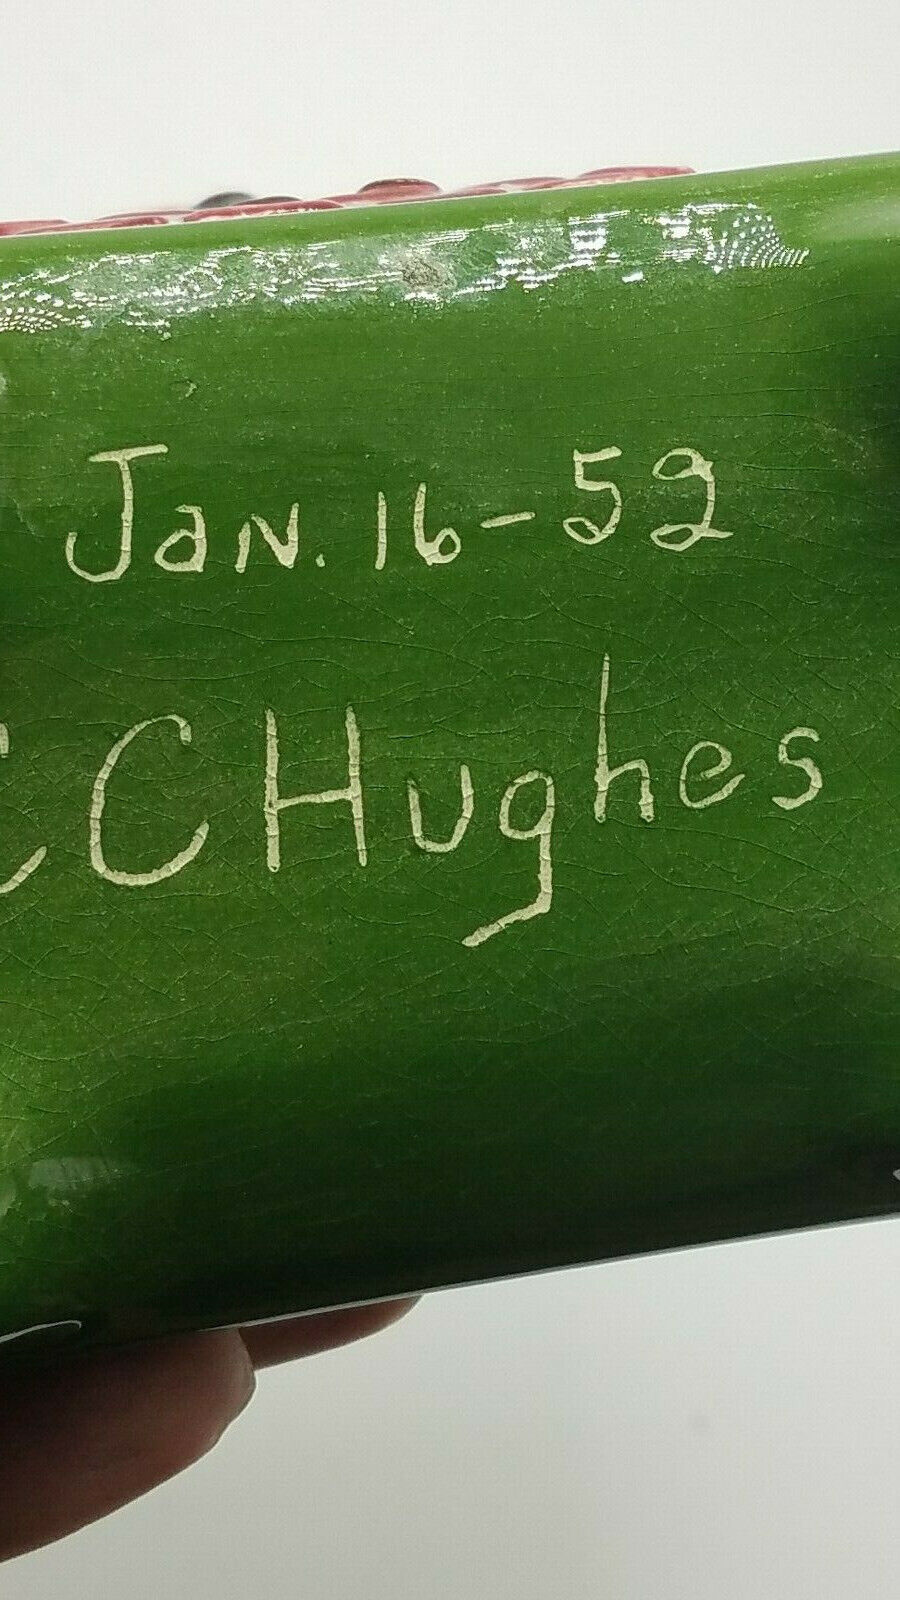 Jan. 16-52
CCHughes